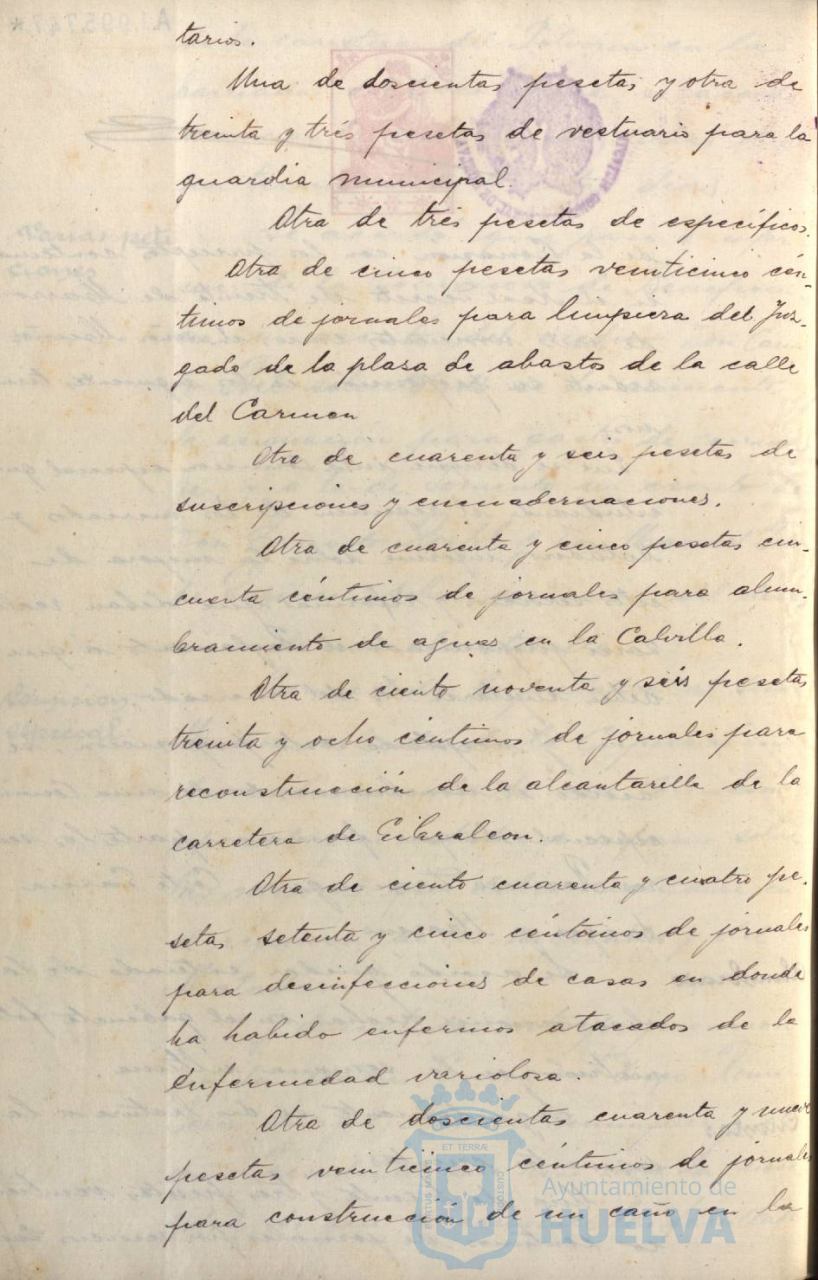 tarios.
Una de doscientas pesetas y otra de
treinta y trés pesetas de vestuario para la
guardia municipal.
Otra de tres pesetas de específicos.
Otra de cinco pesetas veinticinco cén-
timos de jornales para limpieza del Juz-
gado de la plaza de abastos de la calle
del Carmen
Otra de cuarenta y seis pesetas de
suscripciones y encuadernaciones.
Otra de cuarenta y cinco pesetas cin-
cuenta céntimos de jornales para alum-
bramiento de aguas en la Calvilla.
Otra de ciento noventa y seis pesetas
treinta y ocho céntimos de jornales para
reconstrucción de la alcantarilla de la
carretera de Gibraleon.
Otra de ciento cuarenta y cuatro pe-
setas setenta y cinco céntimos de jornales
para desinfecciones de casas en donde
ha habido enfermos atacados de la
enfermedad variolosa.
Otra de doscientas cuarenta y nueve
pesetas veinticinco céntimos de jornales
para construcción de un caño en la
ET TERRÆ
Ayuntamiento de
HUELVA